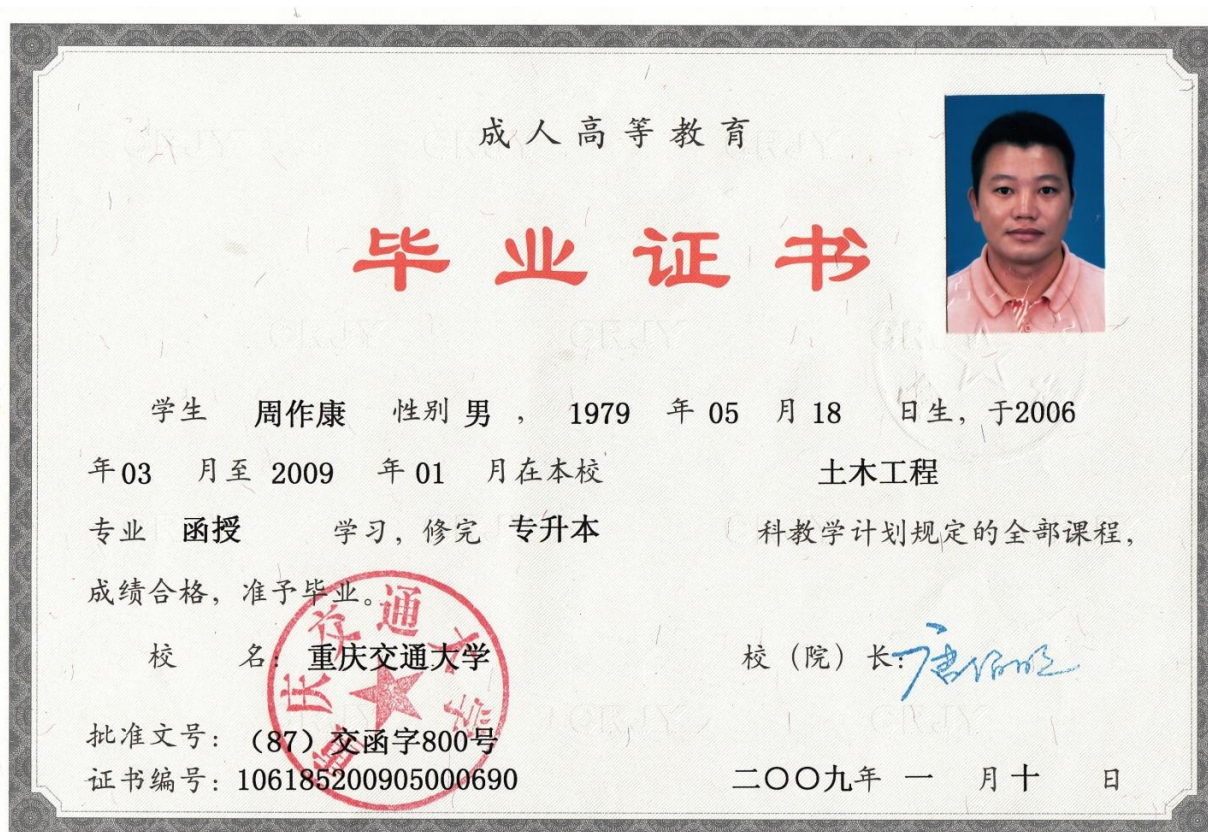 成人高等教育
毕业证书
学生 周作康 性别 男 ， 1979 年 05 月 18 日生，于2006
年 03 月至 2009 年 01 月在本校 土木工程
专业 函授 学习，修完 专升本 科教学计划规定的全部课程，
成绩合格，准予毕业。
校 名：重庆交通大学 校（院）长：唐伯明
重庆交通大学
批准文号：（87）交函字800号
证书编号：106185200905000690 二〇〇九年 一 月 十 日